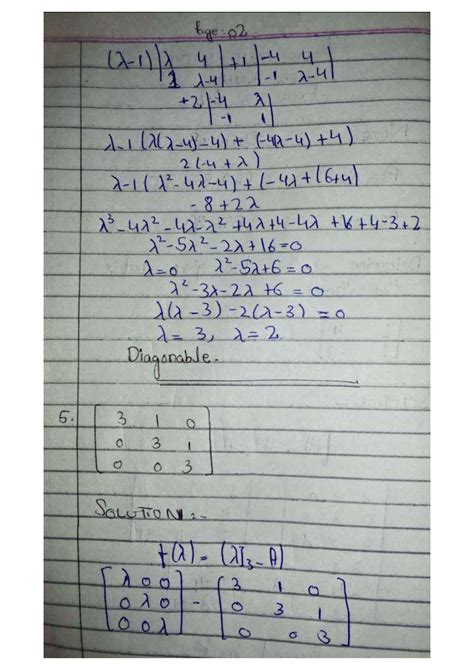 Page: 02
(λ-1) |λ 4| +1 |-4 4|
|1 λ-4| |-1 λ-4|
+2 |-4 λ|
|-1 1|
λ-1 (λ(λ-4)-4) + (-4(λ-4)+4)
2(-4+λ)
λ-1 (λ²-4λ-4) + (-4λ+16+4)
-8+2λ
λ³-4λ²-4λ-λ²+4λ+4-4λ+16+4-3+2
λ²-5λ²-2λ+16=0
λ=0 λ²-5λ+6=0
λ²-3λ-2λ+6=0
λ(λ-3)-2(λ-3)=0
λ=3, λ=2
Diagonable.
5. [3 1 0]
[0 3 1]
[0 0 3]
SOLUTION:-
f(λ) = (λI₃-A)
[λ 0 0] - [3 1 0]
[0 λ 0] [0 3 1]
[0 0 λ] [0 0 3]